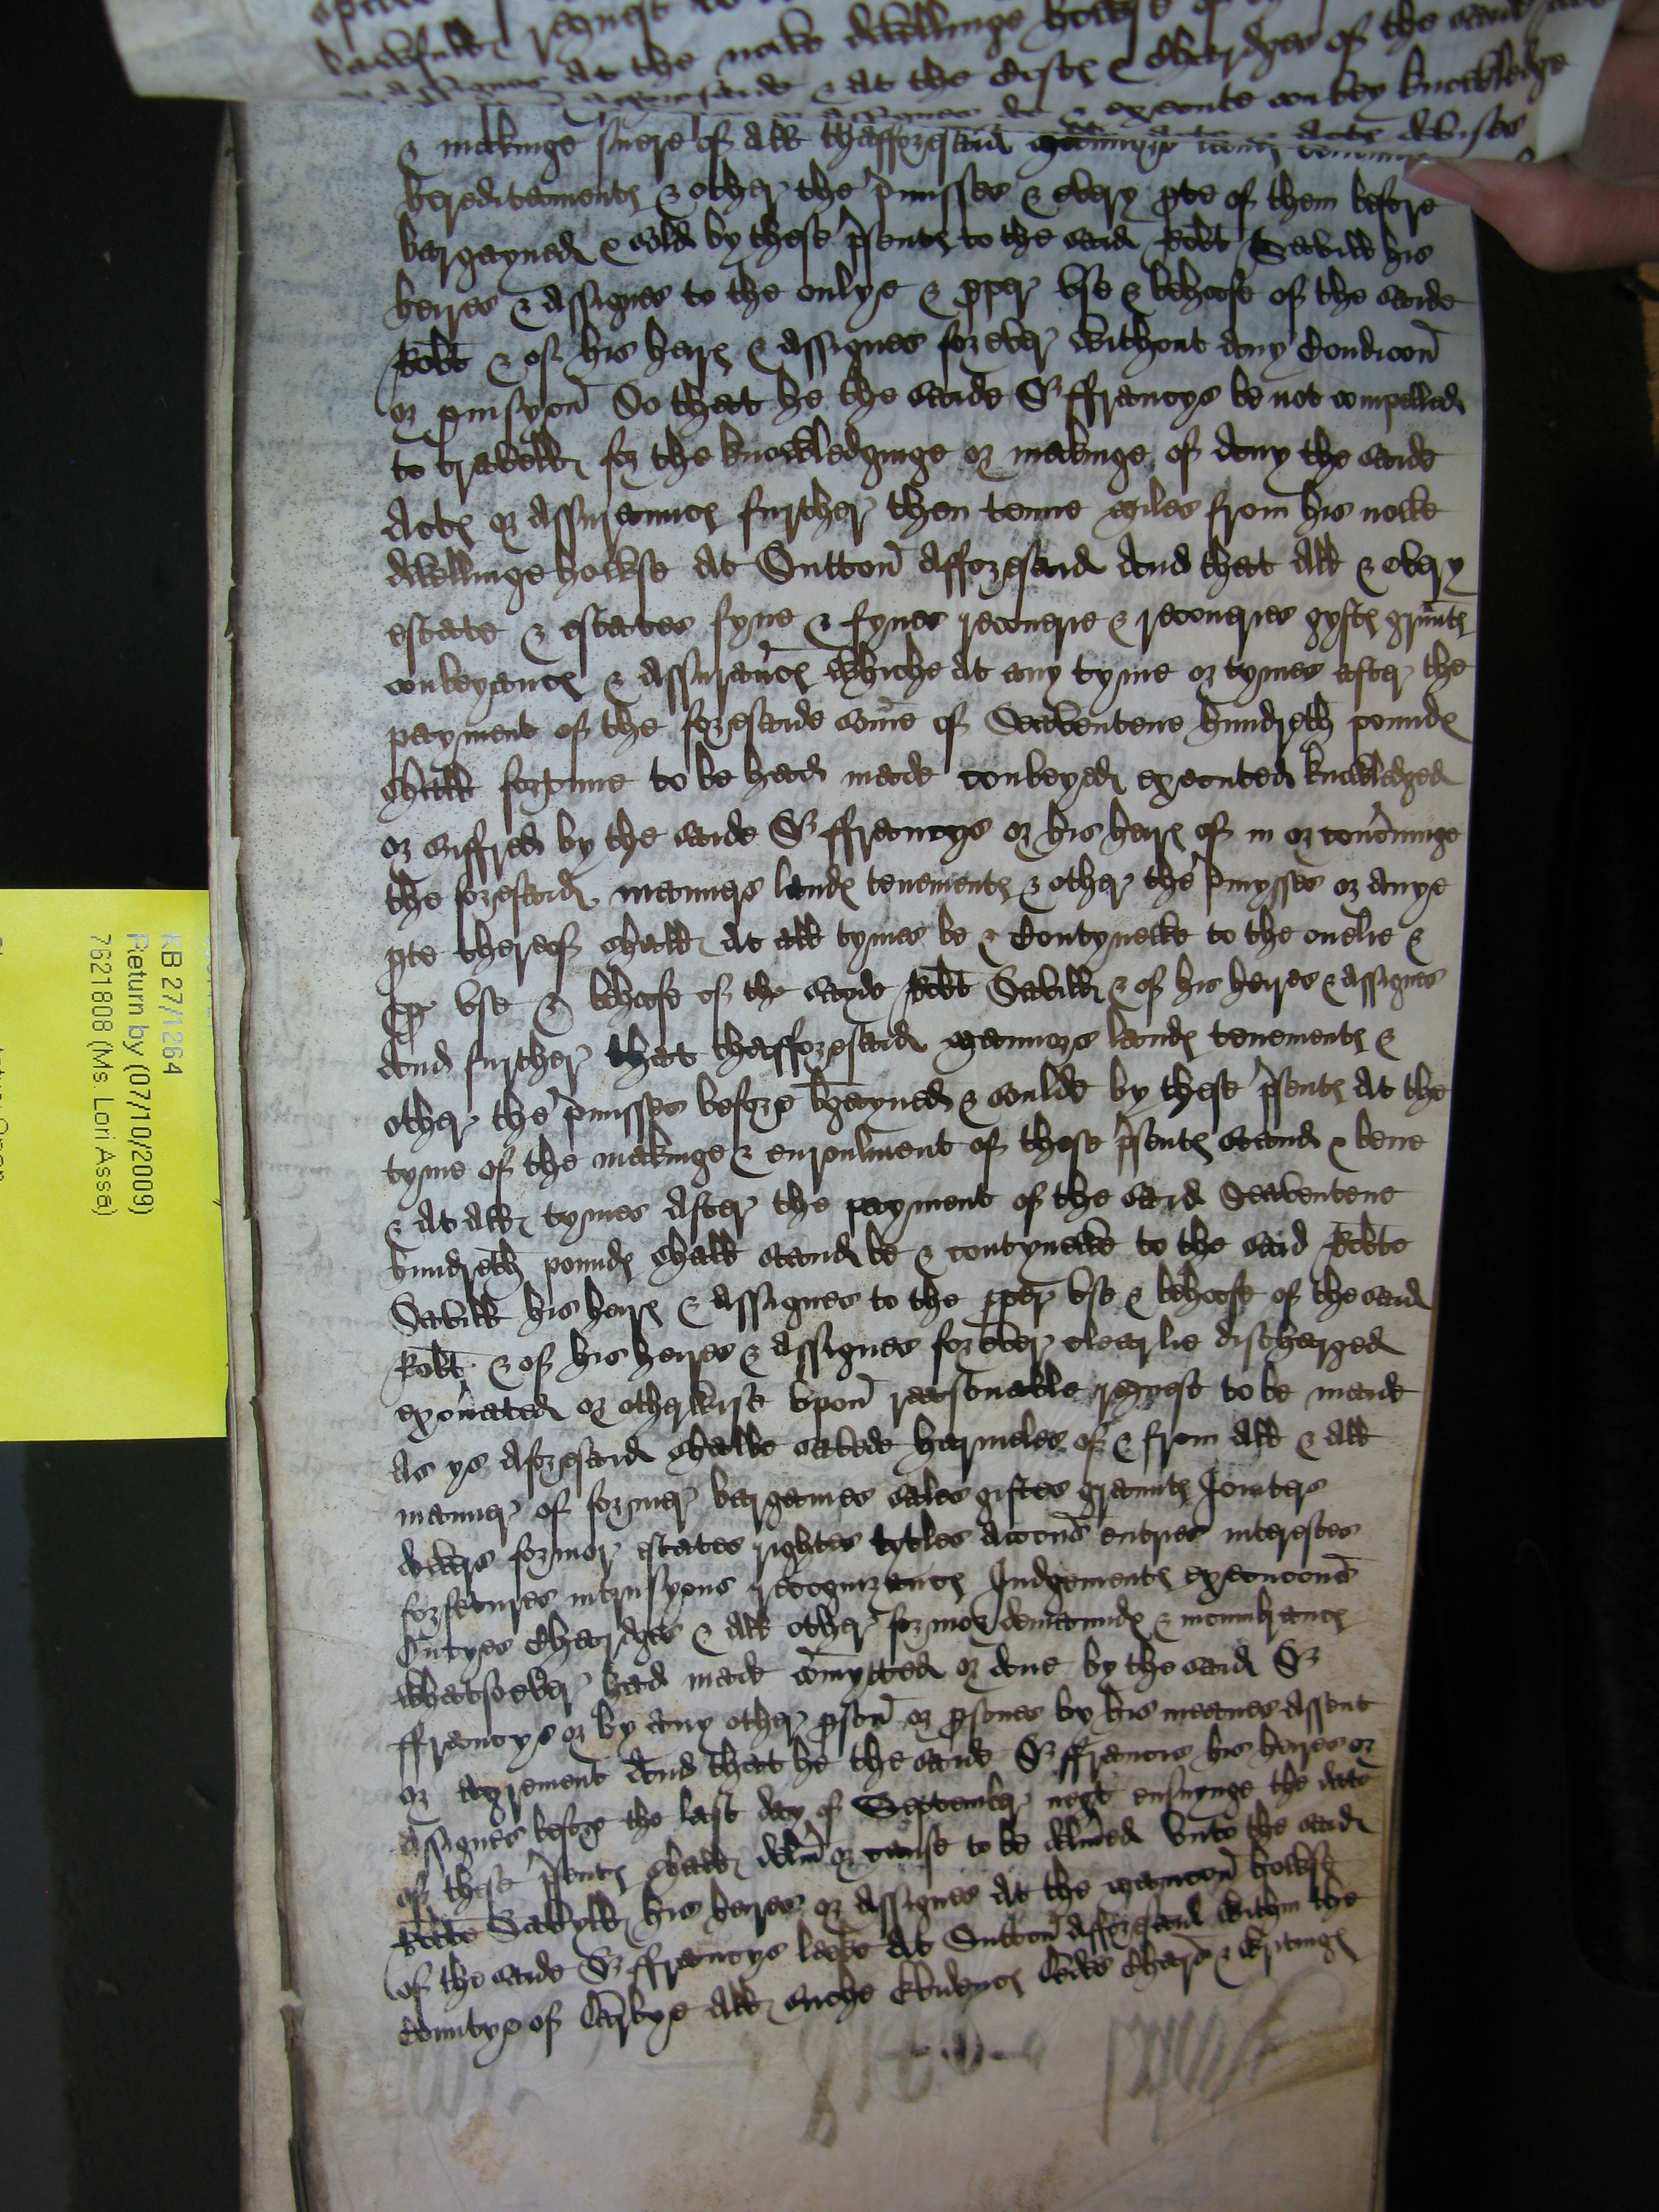 request
at the nowe dwellinge howse of
at the Costs & Chardges of the said
& execute convey knowledge
& makinge suere of all thafforesaid
hereditaments & other the p'misses & every pte of them before
bargayned & sold by these p'sents to the said Robt Savill his
heires & assignes to the onlye & pper vse & behoofe of the saide
Robt & of his heirs & assignes for ever without any Condicon
or So that he the saide Sr ffrancys be not compelled
to travell for the knowledginge or makinge of any the saide
Acts or assurancs further then tenne myles from his nowe
dwellinge howse at Sutton afforesaid And that all & every
estate & estates fyne & fynes recouerie & recoueries gyfts grunts
conveyancs & assurancs whiche at any tyme or tymes after the
payment of the foresaide some of Seaventene hundreth pounds
shall fortune to be had made conveyed executed knowledged
or suffred by the saide Sr ffrancys or his heirs of in or concninge
the foresaid mannors lands tenements & other the p'mysses or anye
pte thereof shall at all tymes be & Contynewe to the onelie &
pp vse & behoofe of the sayde Robt Savill & of his heires & assignes
And further that thafforesaid mannors lands tenements &
other the p'misses before bgayned & soulde by these p'sents at the
tyme of the makinge & enroulment of these p'sents stand & bene
& at all tymes after the payment of the said Seaventene
hundreth pounds shall stand be & contynewe to the said Robte
Savill his heirs & assignes to the pper vse & behoofe of the said
Robt & of his heires & assignes for ever clearlie discharged
exonated or otherwise vpon reasonable request to be made
as ys aforesaid shalbe saved harmeles of & from all & all
manner of former bargaines sales giftes graunts Jointers
dowers former estates rightes tytles accons entries interestes
forfetures intrusyons recognizancs Judgements execucons
Chardges & all other former demaunds & incumbrancs
whatsoever had made comytted or done by the said Sr
ffrancys or by any other pson or psones by his meanes assent
or agrement And that he the saide Sr ffrancis his heires or
assignes before the last day of September next ensuynge the date
of these p'sents shall deliu or cause to be deliued vnto the said
Robte Savyll his heires or assignes at the mancon howse
of the saide Sr ffrancys Leeke at Sutton afforesaid within the
Countye of Darbye all suche Evidencs deedes & writings
KB 27/1264
Return by (07/10/2009)
7621808 (Ms. Lori Assa)